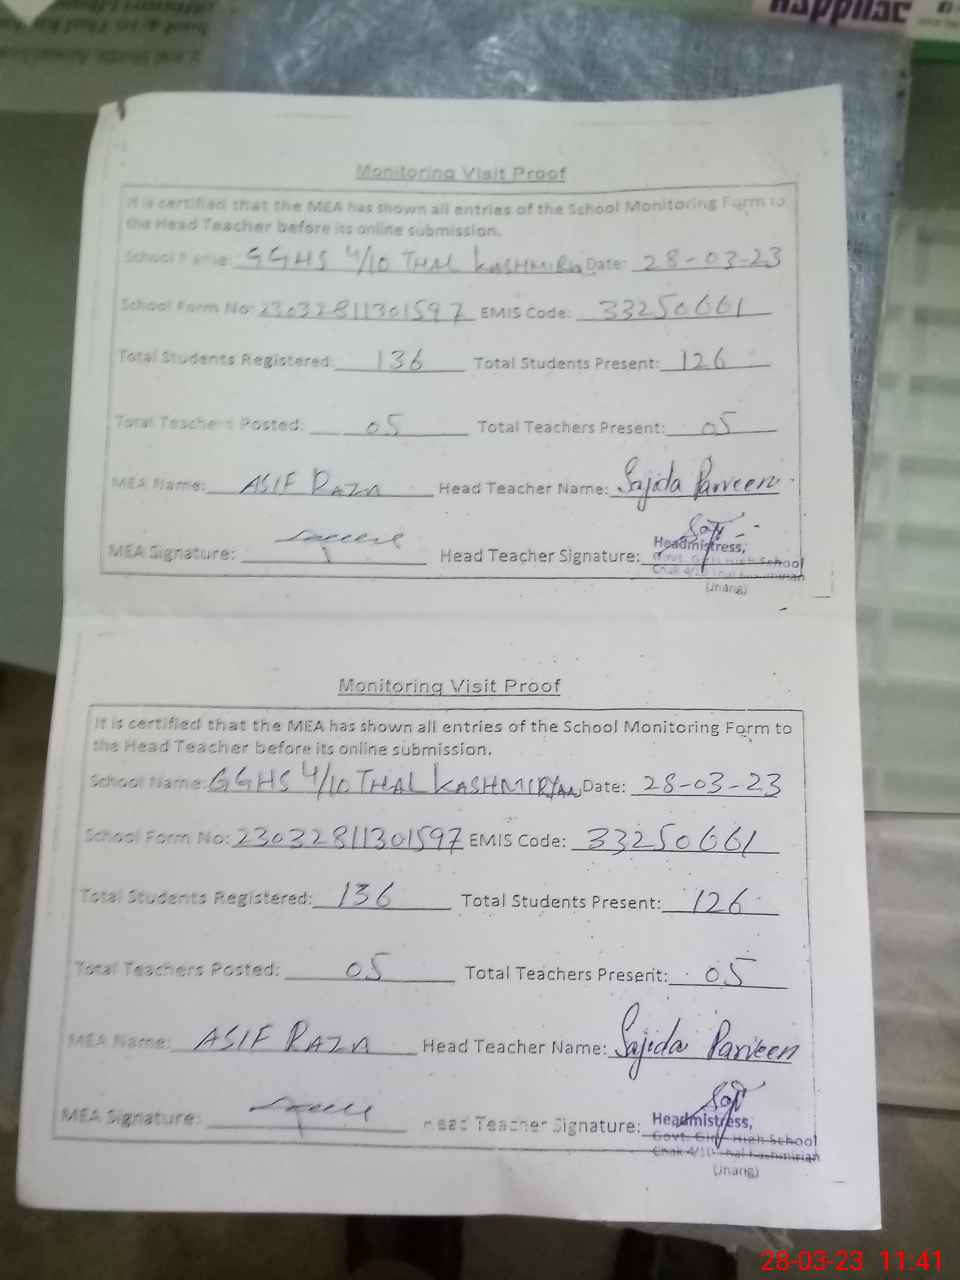 Monitoring Visit Proof
It is certified that the MEA has shown all entries of the School Monitoring Form to
the Head Teacher before its online submission.
School Name: GGHS 4/10 THAL KASHMIRIAN Date: 28-03-23
School Form No: 23032811301597 EMIS Code: 33250661
Total Students Registered: 136 Total Students Present: 126
Total Teachers Posted: 05 Total Teachers Present: 05
MEA Name: ASIF RAZA Head Teacher Name: Sajida Parveen
MEA Signature: Head Teacher Signature:
Headmistress,
Govt. Girls High School
Chak 4/10 Thal Kashmirian
(Jhang)
Monitoring Visit Proof
It is certified that the MEA has shown all entries of the School Monitoring Form to
the Head Teacher before its online submission.
School Name: GGHS 4/10 THAL KASHMIRIAN Date: 28-03-23
School Form No: 23032811301597 EMIS Code: 33250661
Total Students Registered: 136 Total Students Present: 126
Total Teachers Posted: 05 Total Teachers Present: 05
MEA Name: ASIF RAZA Head Teacher Name: Sajida Parveen
MEA Signature: Head Teacher Signature:
Headmistress,
Govt. Girls High School
Chak 4/10 Thal Kashmirian
(Jhang)
28-03-23 11:41